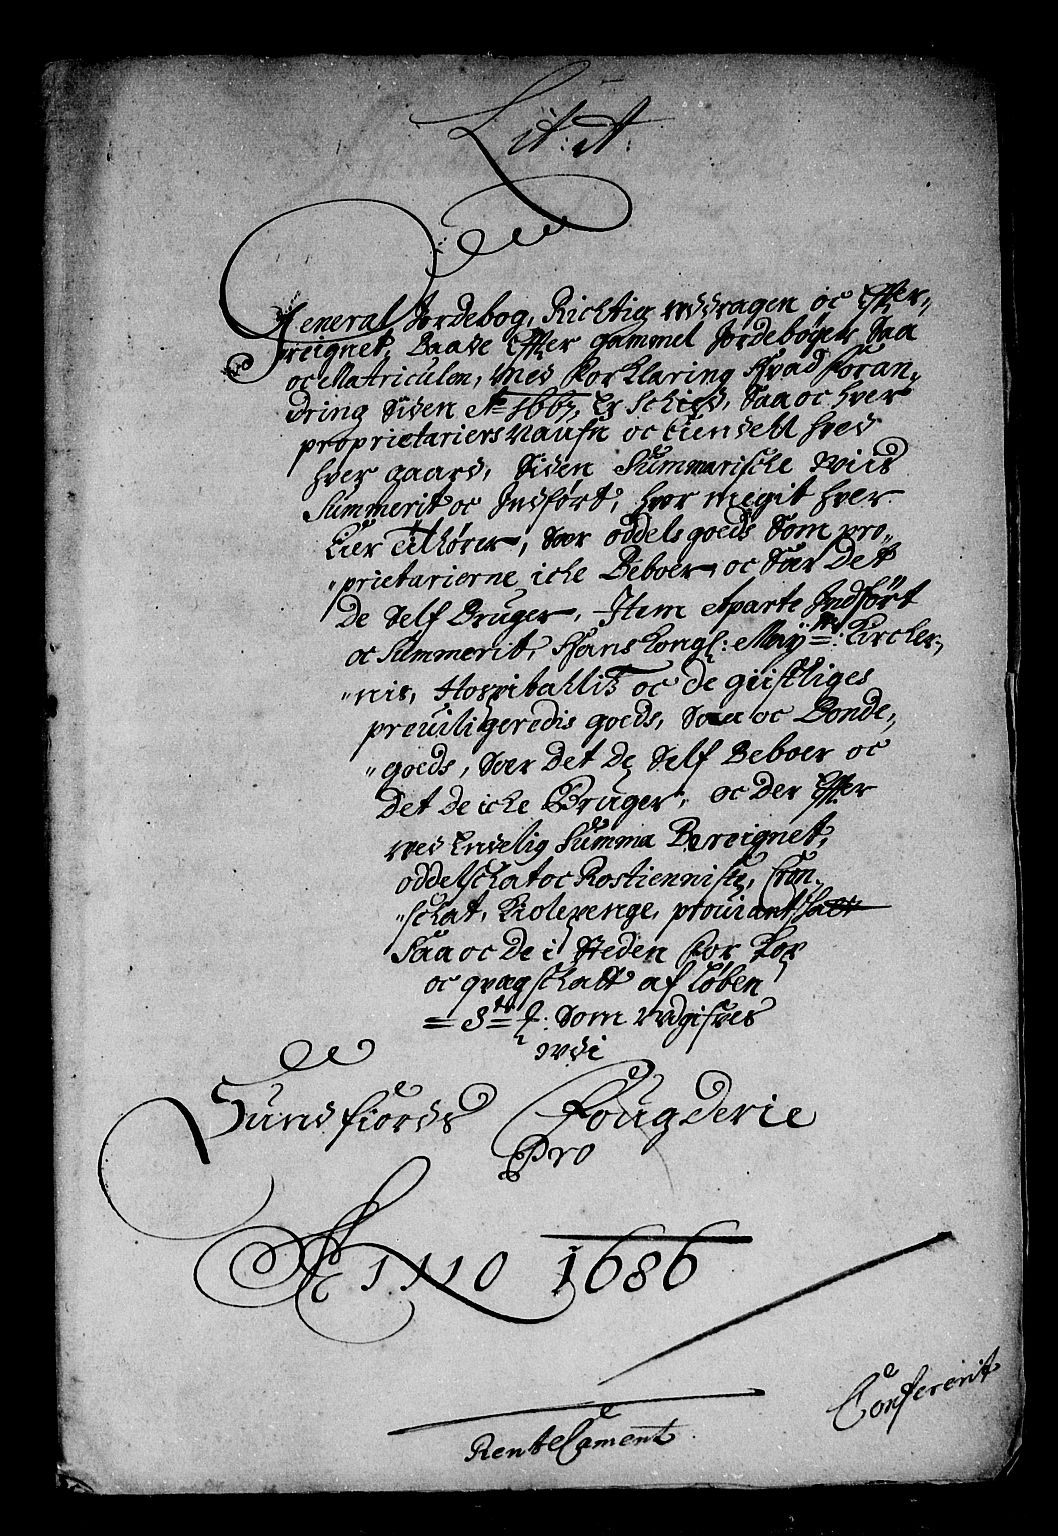 Lit: A:
General Jordebog, Richtig uddragen oc Effter,,
reignet, Baade Effter gammel Jordebøger Saa
oc Matriculen, Med Forklaring Hvad foran,,
dring Siden Ao 1667, Er Scheed, Saa oc hver
proprietariers Naufn oc Eiendeel hved
hver gaard, Siden Summarische viis
Summerit oc Indført, hvor megit hver
Eier tilhører, Saer oddels goeds Som pro,,
,,prietarierne iche Beboer, oc Saer Det
De Self Bruger, Item Aparte Indført
oc Summerit, Hans Kongl: Maÿtts: Kircher,,
,,nis, Hospitallits oc de geistliges
preuiligeredis goeds, Saa oc Bonde,,
,,goeds, Saer Det De Self Beboer oc
Det De iche Bruger, oc Der Effter
ved Endelig Summa Bereignet,
oddelschat oc Rostienniste, Son,,
,,schat, Kiolepenge, prouiant Schatt
Saa oc De i Steden for Kor
oc qvægschatt af løben
= 3tr = Som udgifves
udi
Sundfiords Fougderie
Pro
Anno 1686
Confererit
RenteCament